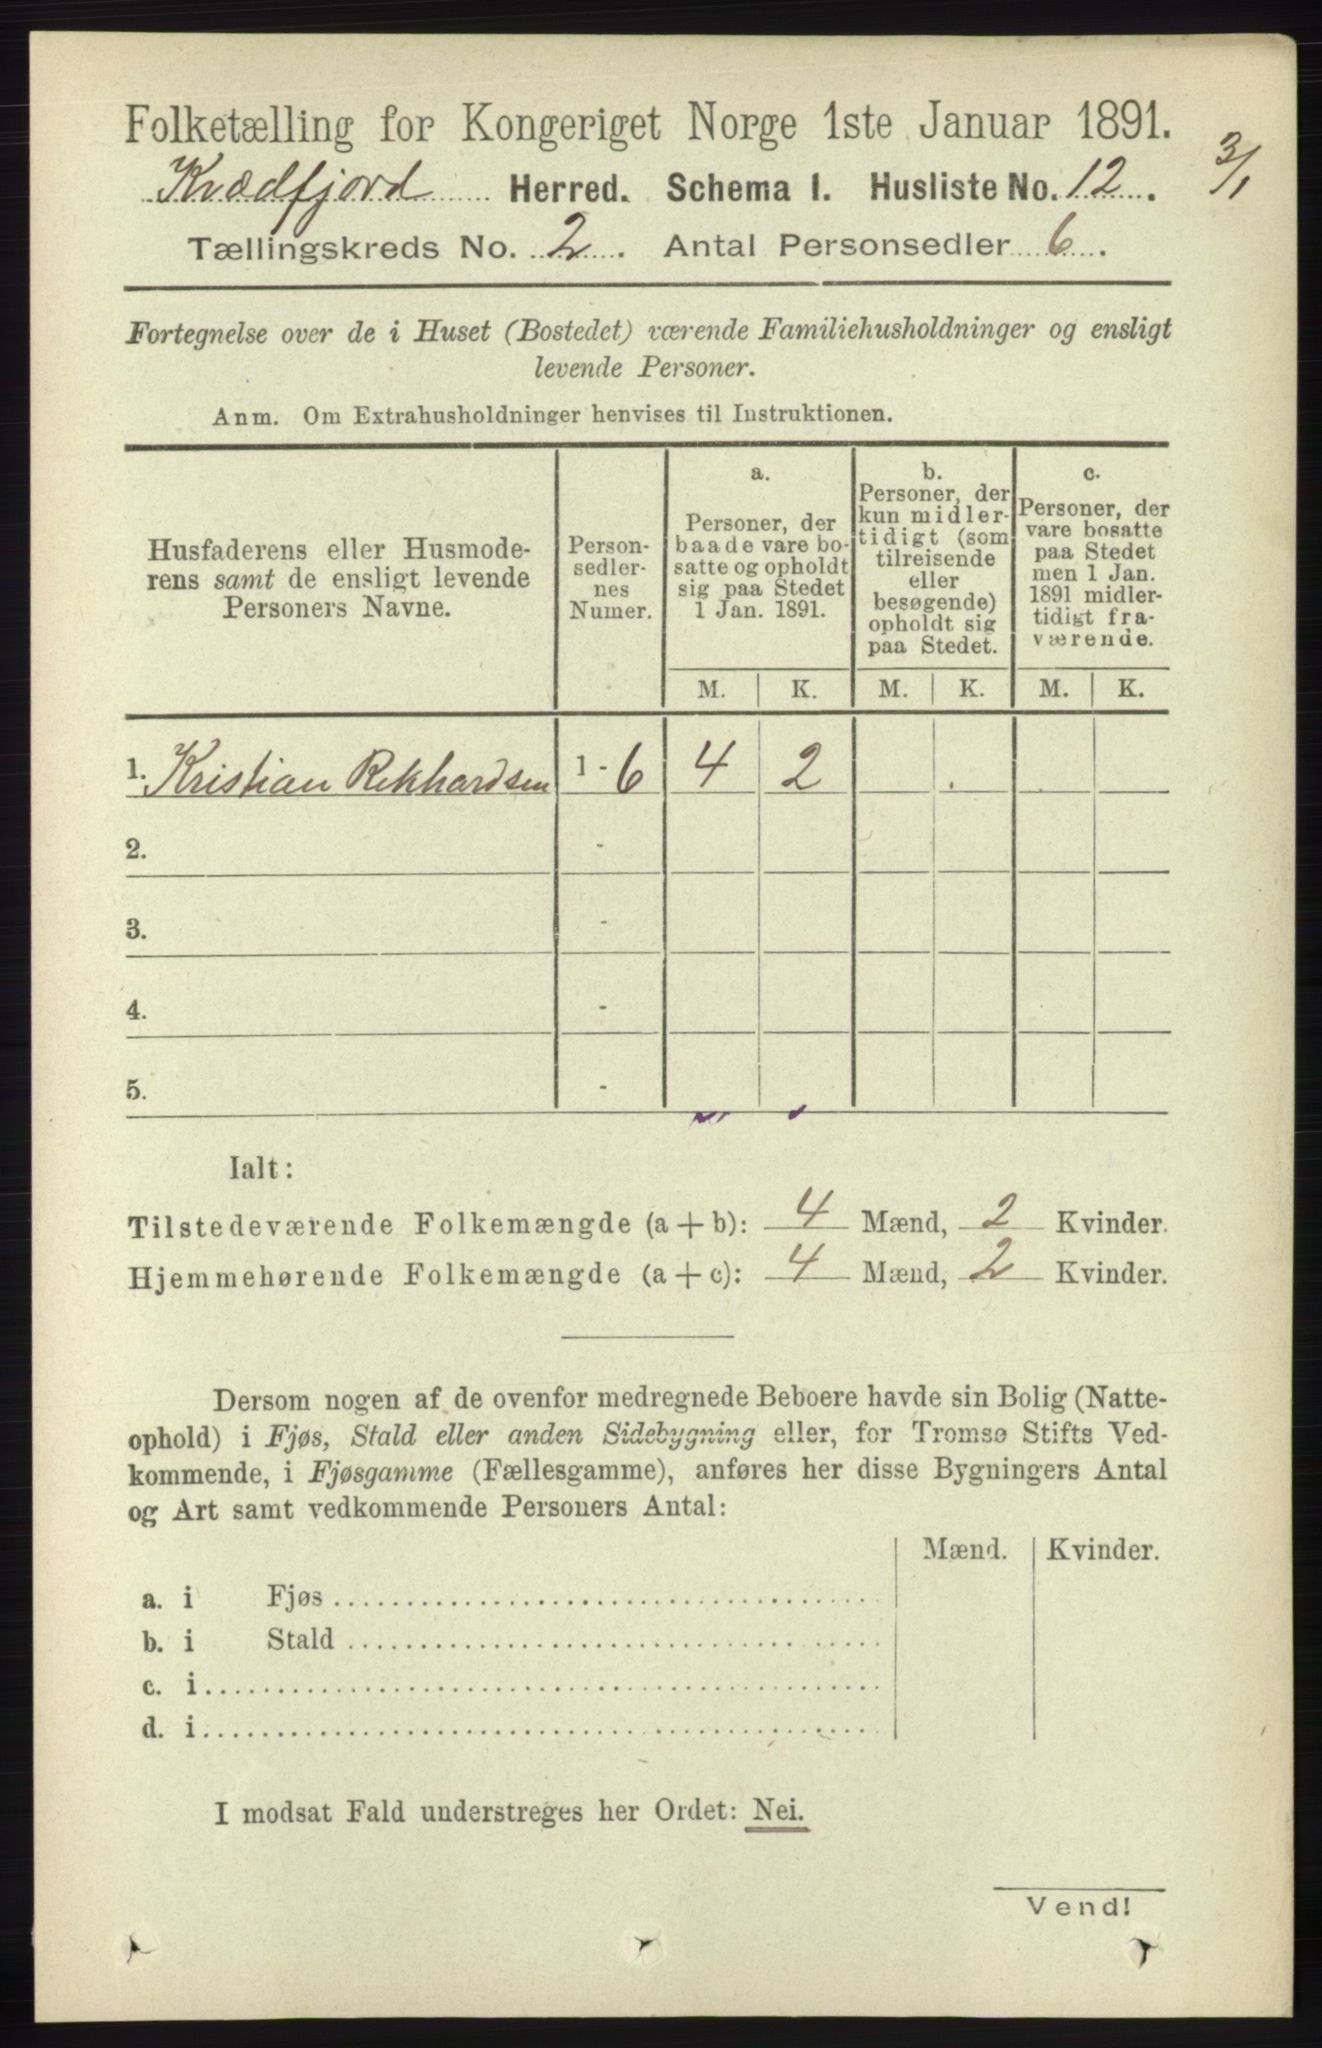 Folketælling for Kongeriget Norge 1ste Januar 1891.
3/1
Kvædfjord Herred. Schema 1. Husliste No. 12.
Tællingskreds No. 2. Antal Personsedler 6.
Fortegnelse over de i Huset (Bostedet) værende Familiehusholdninger og ensligt
levende Personer.
Anm. Om Extrahusholdninger henvises til Instruktionen.
Husfaderens eller Husmode-
rens samt de ensligt levende
Personers Navne.
Person-
sedler-
nes
Numer.
a.
Personer, der
baade vare bo-
satte og opholdt
sig paa Stedet
1 Jan. 1891.
b.
Personer, der
kun midler-
tidigt (som
tilreisende
eller
besøgende)
opholdt sig
paa Stedet.
c.
Personer, der
vare bosatte
paa Stedet
men 1 Jan.
1891 midler-
tidigt fra-
værende.
M. K. M. K. M. K.
1. Kristian Rekhardsen 1-6 4 2
2. -
3. -
4. -
5. -
Ialt:
Tilstedeværende Folkemængde (a + b): 4 Mænd, 2 Kvinder.
Hjemmehørende Folkemængde (a + c): 4 Mænd, 2 Kvinder.
Dersom nogen af de ovenfor medregnede Beboere havde sin Bolig (Natte-
ophold) i Fjøs, Stald eller anden Sidebygning eller, for Tromsø Stifts Ved-
kommende, i Fjøsgamme (Fællesgamme), anføres her disse Bygningers Antal
og Art samt vedkommende Personers Antal:
Mænd. Kvinder.
a. i Fjøs
b. i Stald
c. i
d. i
I modsat Fald understreges her Ordet: Nei.
Vend!